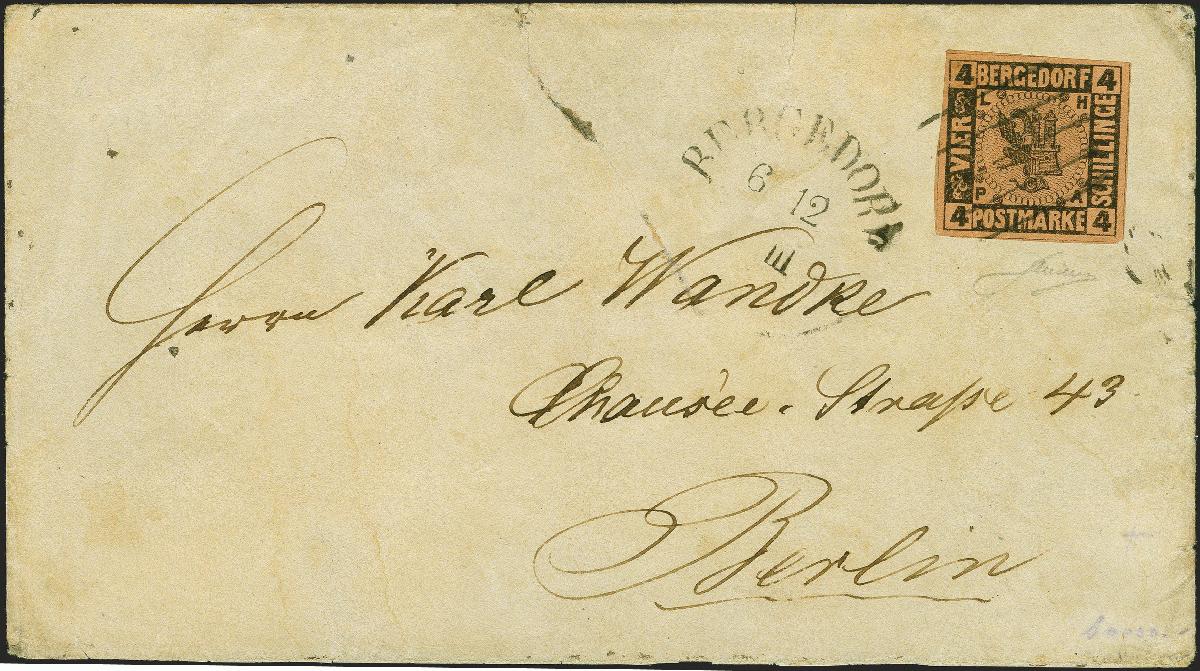 4 BERGEDORF 4
L H
VIER
SCHILLINGE
P A
4 POSTMARKE 4
BERGEDORF
6 12
E
Herrn Karl Wandke
Chausée-Straße 43
Berlin